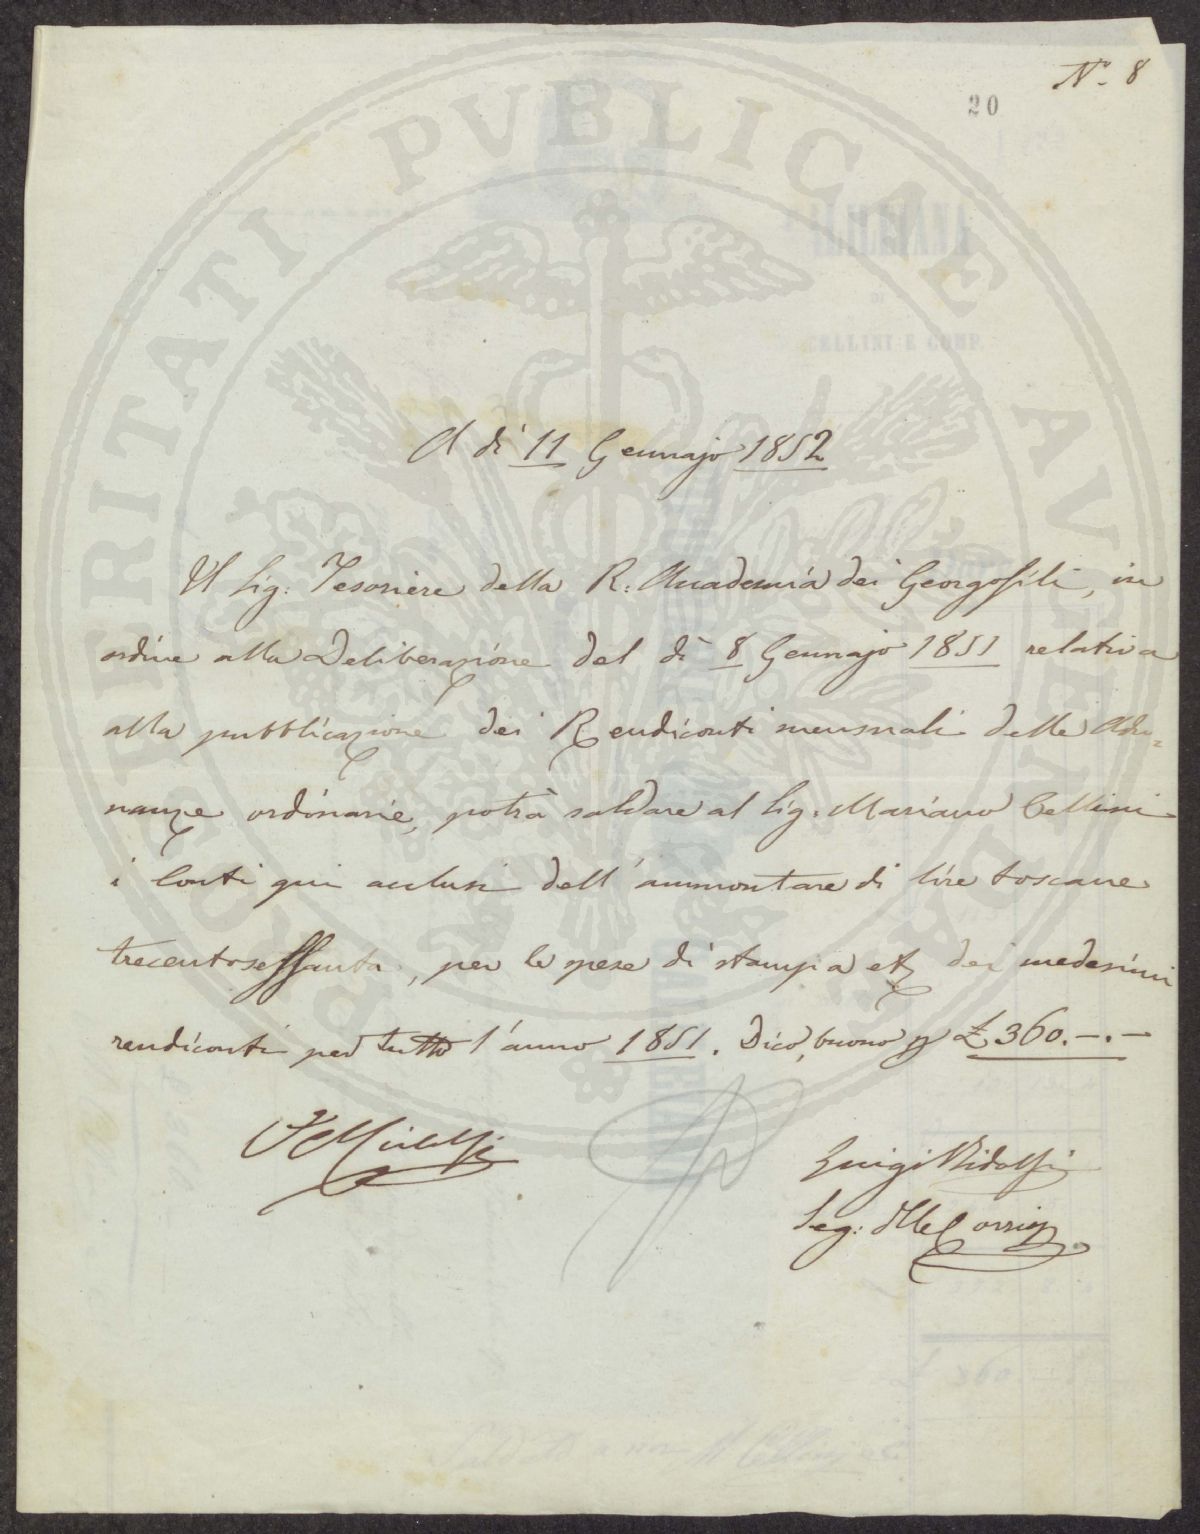 N.° 8
20
PROSPERITATI PVBLICAE AVGENDAE
A dì 11 Gennajo 1852
Il Sig: Tesoriere della R: Accademia dei Georgofili, in
ordine alla Deliberazione del dì 8 Gennajo 1851 relativa
alla pubblicazione dei Rendiconti mensuali delle Adu=
nanze ordinarie, potrà saldare al Sig: Mariano Cellini
i Conti qui acclusi dell'ammontare di lire toscane
trecentosessanta, per le spese di stampa etc dei medesimi
rendiconti per tutto l'anno 1851. Dico, buono p £ 360.-.-
Luigi Ridolfi
Seg: